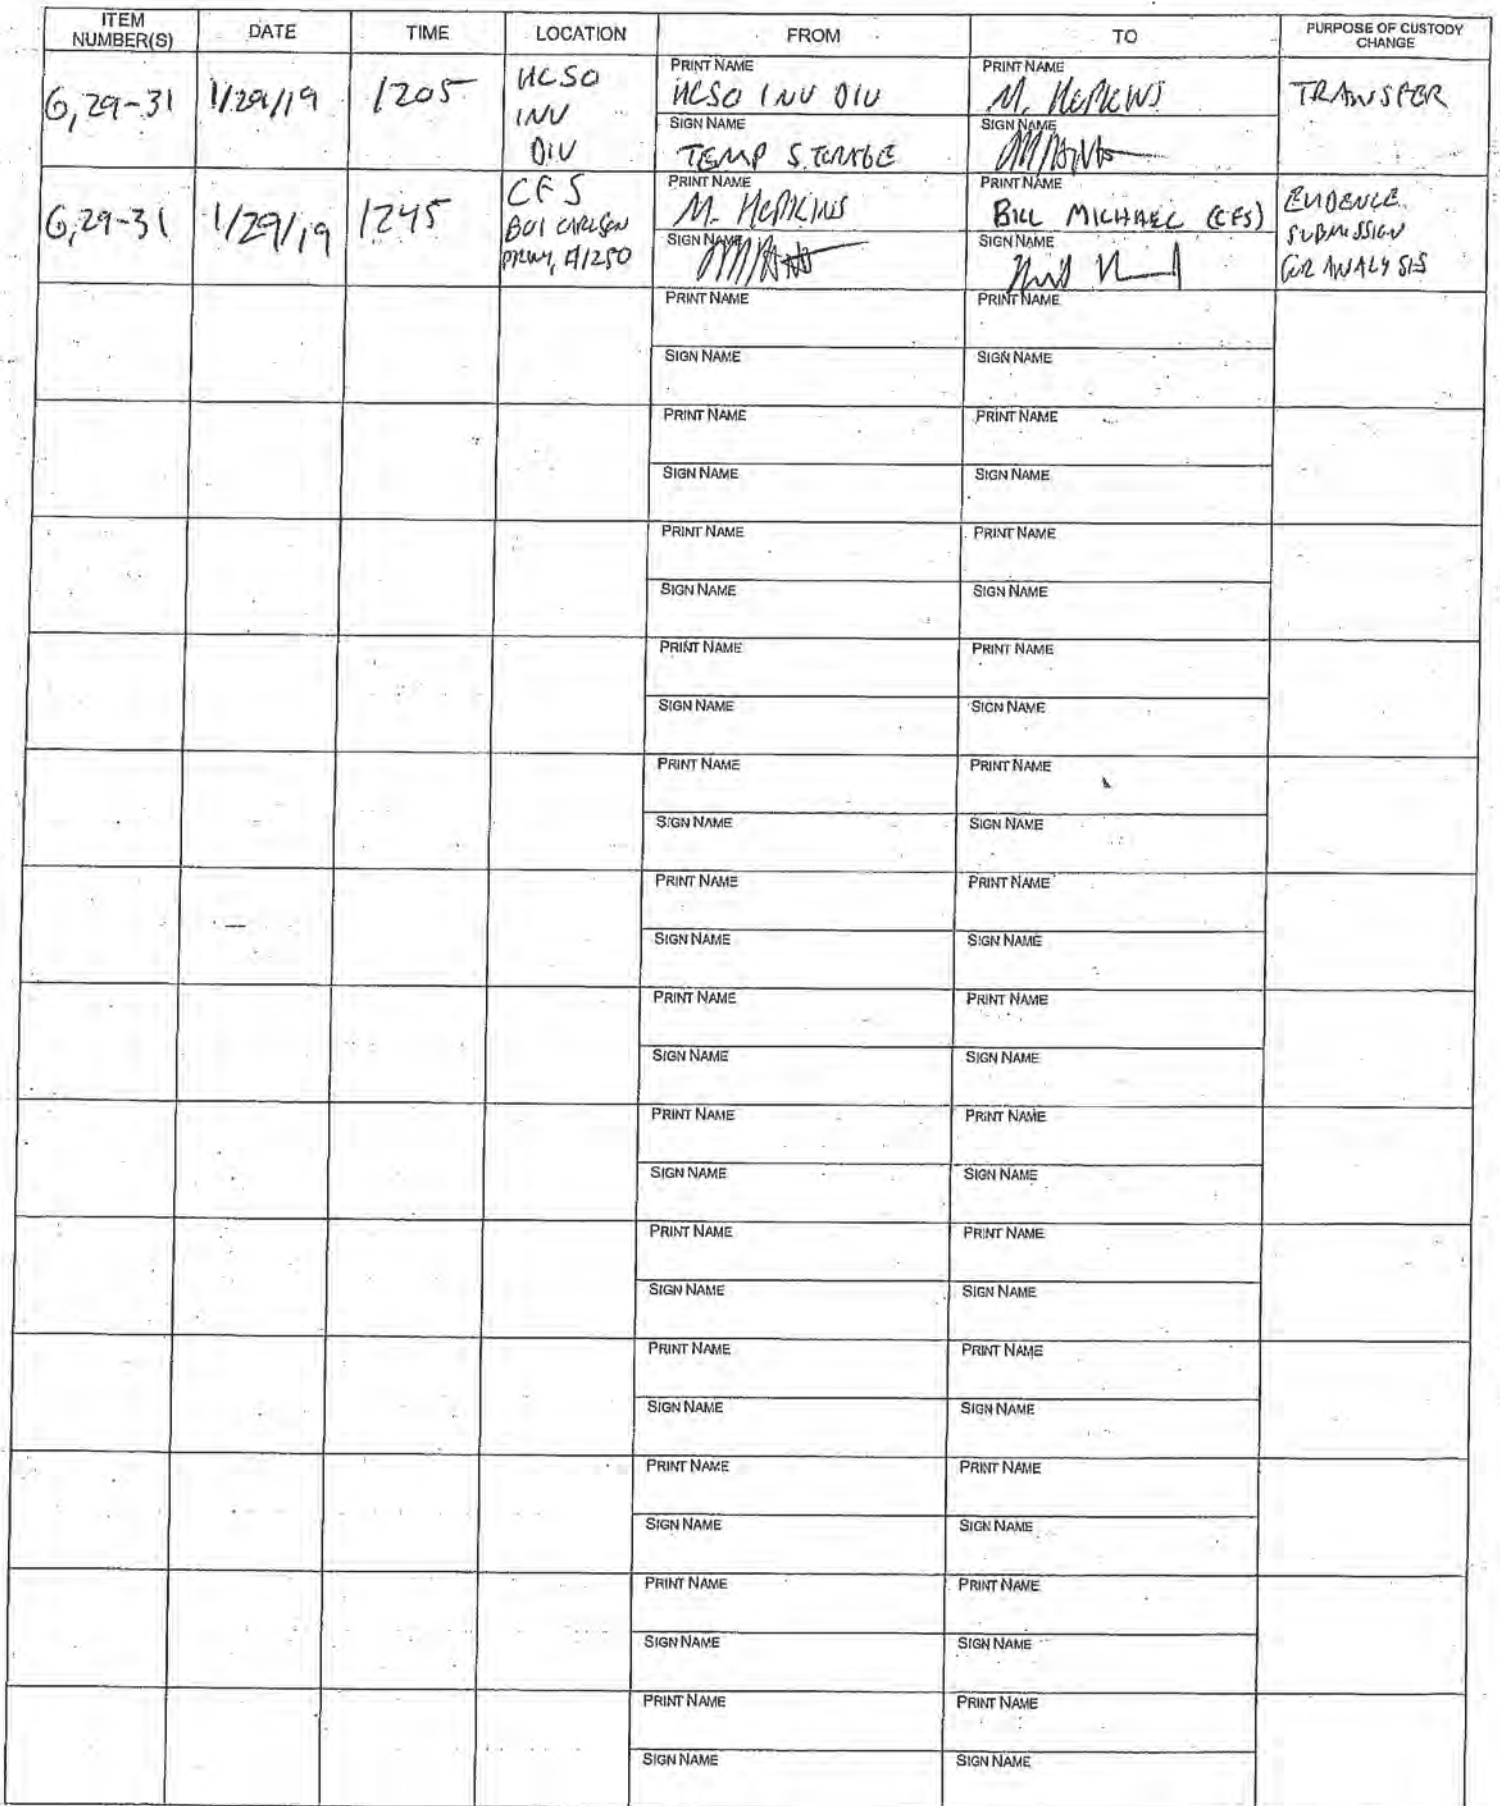 ITEM NUMBER(S) DATE TIME LOCATION FROM TO PURPOSE OF CUSTODY CHANGE
6,29-31 1/29/19 1205 HCSO INV DIV
PRINT NAME
HCSO INV DIV
SIGN NAME
TEMP STORAGE
PRINT NAME
M. HOPKINS
SIGN NAME
TRANSFER
6,29-31 1/29/19 1245 CFS
801 CARLSON
PKWY, #1250
PRINT NAME
M. HOPKINS
SIGN NAME
PRINT NAME
BILL MICHAEL (CFS)
SIGN NAME
EVIDENCE
SUBMISSION
FOR ANALYSIS
PRINT NAME PRINT NAME
SIGN NAME SIGN NAME
PRINT NAME PRINT NAME
SIGN NAME SIGN NAME
PRINT NAME PRINT NAME
SIGN NAME SIGN NAME
PRINT NAME PRINT NAME
SIGN NAME SIGN NAME
PRINT NAME PRINT NAME
SIGN NAME SIGN NAME
PRINT NAME PRINT NAME
SIGN NAME SIGN NAME
PRINT NAME PRINT NAME
SIGN NAME SIGN NAME
PRINT NAME PRINT NAME
SIGN NAME SIGN NAME
PRINT NAME PRINT NAME
SIGN NAME SIGN NAME
PRINT NAME PRINT NAME
SIGN NAME SIGN NAME
PRINT NAME PRINT NAME
SIGN NAME SIGN NAME
PRINT NAME PRINT NAME
SIGN NAME SIGN NAME
PRINT NAME PRINT NAME
SIGN NAME SIGN NAME